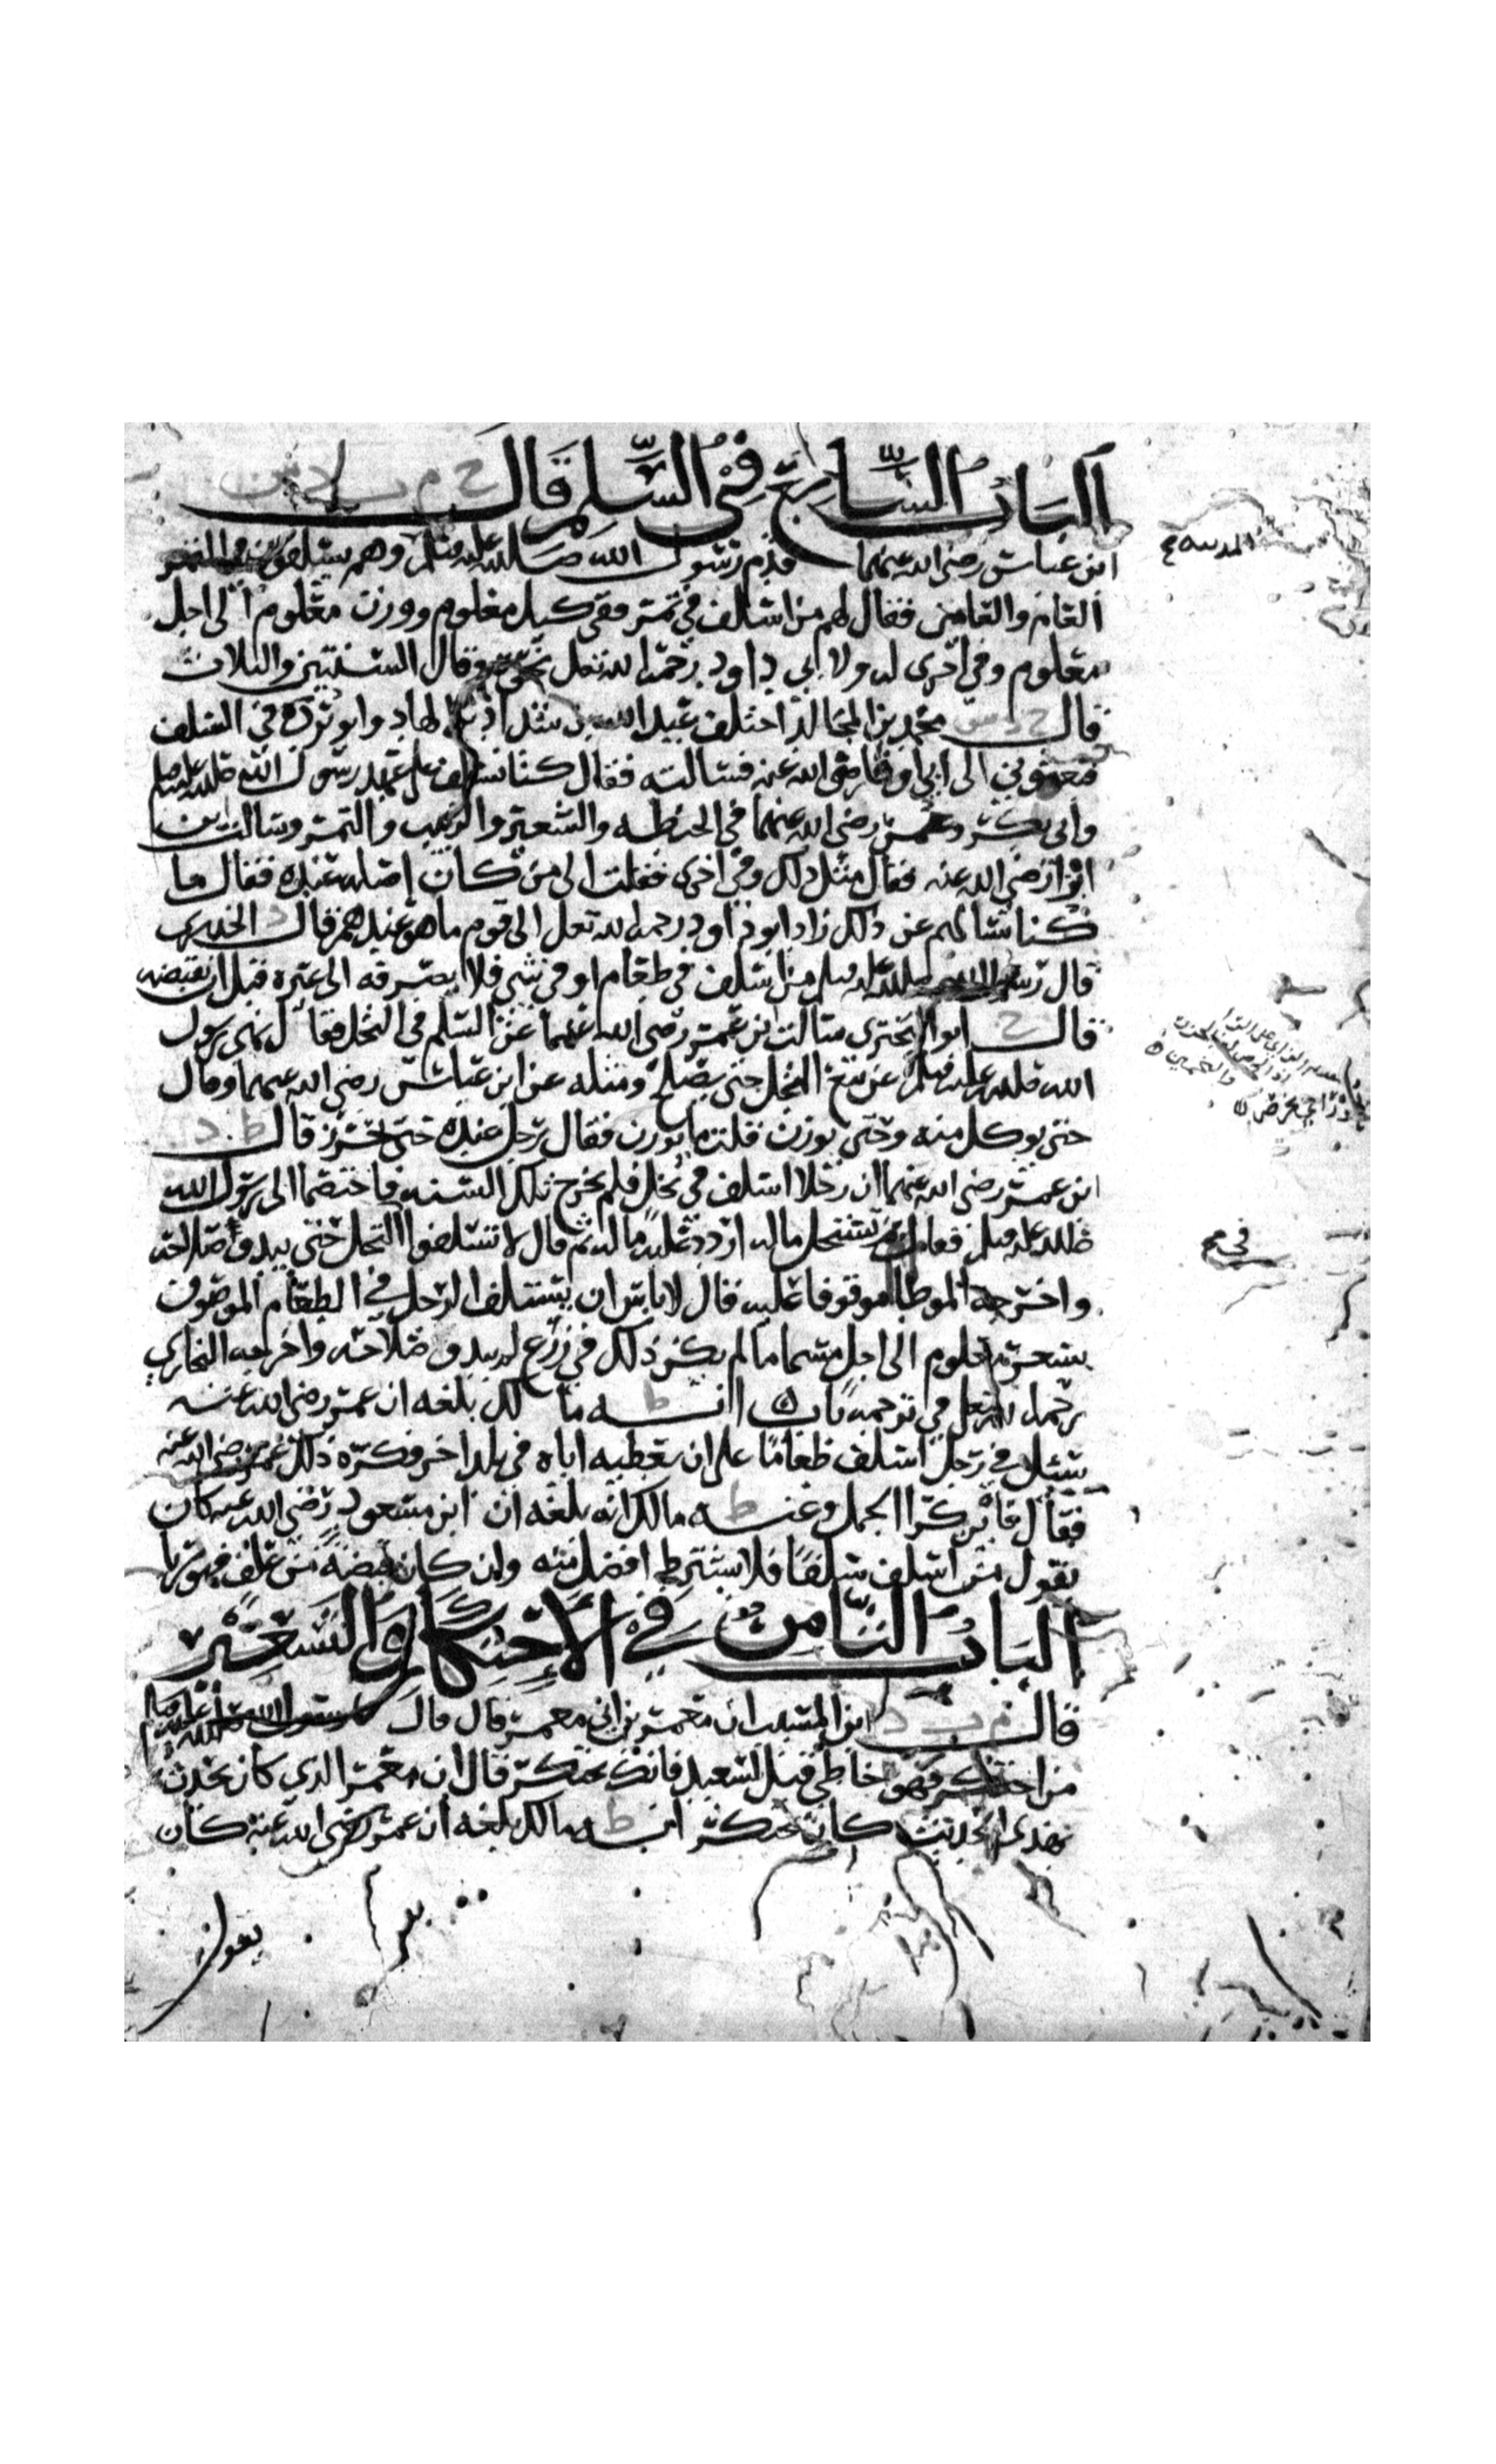 الباب السابع في السلم قال خ م ت د س
ابن عباس رضي الله عنهما قدم رسول الله صلى الله عليه وسلم وهم يسلفون في التمر
العام والعامين فقال لهم من اسلف في تمر ففي كيل معلوم ووزن معلوم الى اجل
معلوم وفي اخرى له ولابي داود رحمه الله تعلى نحوه وقال السنتين والثلاث
قال خ د س محمد بن المجالد اختلف عبد الله بن شداد بن الهاد وابو بردة في السلف
فبعثوني الى ابي اوفى رضي الله عنه فسالته فقال كنا نسلف على عهد رسول الله صلى الله عليه وسلم
وابي بكر وعمر رضي الله عنهما في الحنطه والشعير والزبيب والتمر وسالت ابن
ابزا رضي الله عنه فقال مثل ذلك وفي اخرى فقلت الى من كان اصله عنده فقال ما
كنا نسالهم عن ذلك زاد ابو داود رحمه الله تعلى الى قوم ما هو عندهم قال د الخدري
قال رسول الله صلى الله عليه وسلم من اسلف في طعام او في شي فلا يصرفه الى غيره قبل ان يقبضه
قال خ ابو البختري سالت ابن عمر رضي الله عنهما عن السلم في النخل فقال نهى رسول
الله صلى الله عليه وسلم عن بيع النخل حتى يصلح ومثله عن ابن عباس رضي الله عنهما وقال
حتى يوكل منه وحتى يوزن قلت ما يوزن فقال رجل عنده حتى يحرز قال ط د
ابن عمر رضي الله عنهما ان رجلا اسلف في نخل فلم يخرج تلك السنه فاختصما الى رسول الله
صلى الله عليه وسلم فقال بم تستحل ماله اردد عليه ماله ثم قال لا تسلفوا النخل حتى يبدو صلاحه
واخرجه الموطا موقوفا عليه قال لا باس ان يستلف الرجل في الطعام الموصوف
بسعر معلوم الى اجل مسما ما لم يكن ذلك في زرع لم يبدو صلاحه واخرجه البخاري
رحمه الله تعلى في ترجمه باب انه ط ما لك بلغه ان عمر رضي الله عنه
سئل في رجل اسلف طعاما على ان يعطيه اياه في بلد اخر فكره ذلك عمر رضي الله عنه
فقال فاين كرا الحمل وعنه ط مالك انه بلغه ان ابن مسعود رضي الله عنه كان
يقول من اسلف سلفا فلا يشترط افضل منه وان كان قبضه من علف فهو ربا
الباب الثامن في الاحتكار والتسعير
قال م ت د ابن المسيب ان معمر بن ابي معمر قال قال رسول الله صلى الله عليه وسلم
من احتكر فهو خاطي قيل لسعيد فانك تحتكر قال ان معمر الذي كان يحدث
بهذى الحديث كان يحتكر انه ط مالك بلغه ان عمر رضي الله عنه كان
يقول
المدينه
في